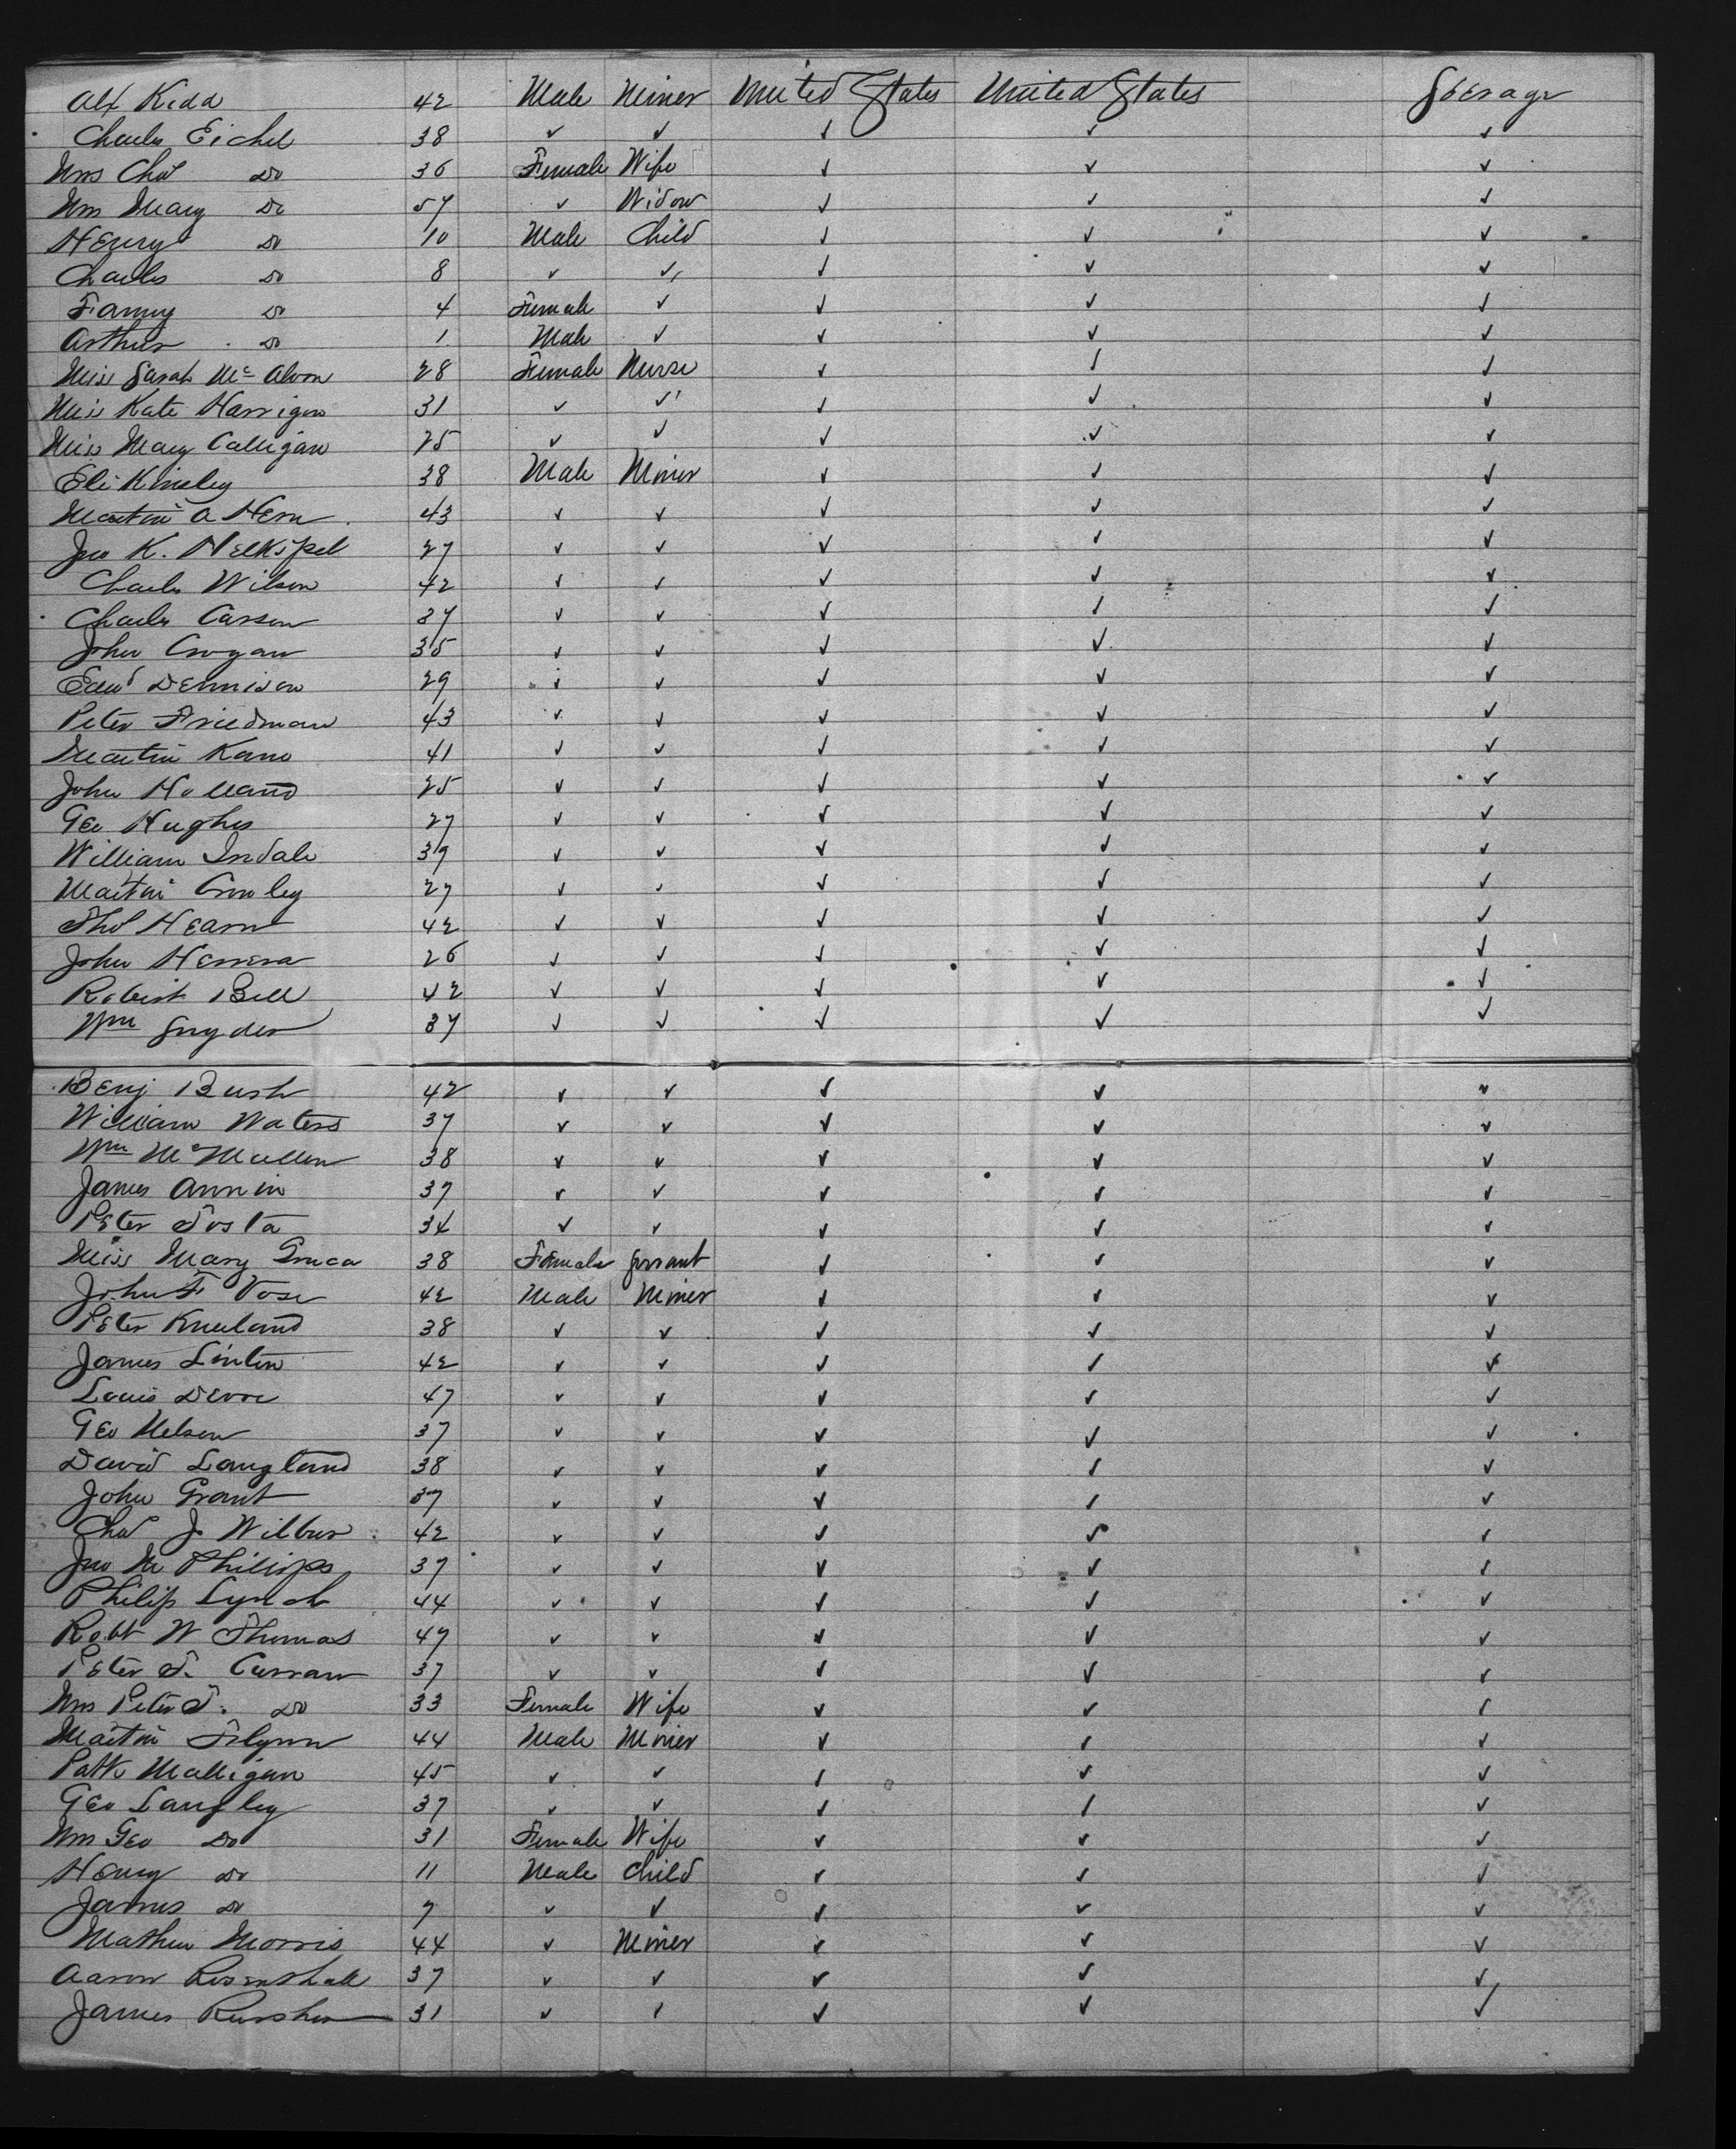 Alx Kidd 42 Male Miner United States United States Steerage
Charles Eichel 38 ✓ ✓ ✓ ✓ ✓
Mrs Chas Do 36 Female Wife ✓ ✓ ✓
Mrs Mary Do 57 ✓ Widow ✓ ✓ ✓
Henry Do 10 Male Child ✓ ✓ ✓
Charles Do 8 ✓ ✓ ✓ ✓ ✓
Fanny Do 4 Female ✓ ✓ ✓ ✓
Arthur Do 1 Male ✓ ✓ ✓ ✓
Miss Sarah Mc Alvon 28 Female Nurse ✓ ✓ ✓
Miss Kate Harrigan 31 ✓ ✓ ✓ ✓ ✓
Miss Mary Calligan 25 ✓ ✓ ✓ ✓ ✓
Eli Kinsley 38 Male Miner ✓ ✓ ✓
Martin A Hern 43 ✓ ✓ ✓ ✓ ✓
Jno K. 27 ✓ ✓ ✓ ✓ ✓
Charles Wilson 42 ✓ ✓ ✓ ✓ ✓
Charles Carson 37 ✓ ✓ ✓ ✓ ✓
John Crogan 35 ✓ ✓ ✓ ✓ ✓
Edwd Dennison 29 ✓ ✓ ✓ ✓ ✓
Peter Friedman 43 ✓ ✓ ✓ ✓ ✓
Martin Kane 41 ✓ ✓ ✓ ✓ ✓
John Holland 25 ✓ ✓ ✓ ✓ ✓
Geo Hughes 27 ✓ ✓ ✓ ✓ ✓
William Indale 39 ✓ ✓ ✓ ✓ ✓
Martin Crowley 27 ✓ ✓ ✓ ✓ ✓
Thos Hearn 42 ✓ ✓ ✓ ✓ ✓
John Herrera 26 ✓ ✓ ✓ ✓ ✓
Robert Bell 42 ✓ ✓ ✓ ✓ ✓
Wm Snyder 37 ✓ ✓ ✓ ✓ ✓
Benj Bush 42 ✓ ✓ ✓ ✓ ✓
William Waters 37 ✓ ✓ ✓ ✓ ✓
Wm McMullen 38 ✓ ✓ ✓ ✓ ✓
James Annin 37 ✓ ✓ ✓ ✓ ✓
Peter Tosta 34 ✓ ✓ ✓ ✓ ✓
Miss Mary 38 Female Servant ✓ ✓ ✓
John F Vose 42 Male Miner ✓ ✓ ✓
Peter Kneeland 38 ✓ ✓ ✓ ✓ ✓
James Linton 42 ✓ ✓ ✓ ✓ ✓
Louis Devoe 47 ✓ ✓ ✓ ✓ ✓
Geo Nelson 37 ✓ ✓ ✓ ✓ ✓
David Langland 38 ✓ ✓ ✓ ✓ ✓
John Grant 37 ✓ ✓ ✓ ✓ ✓
Chas J Wilbur 42 ✓ ✓ ✓ ✓ ✓
Jno M Phillips 37 ✓ ✓ ✓ ✓ ✓
Philip Lynch 44 ✓ ✓ ✓ ✓ ✓
Robt W Thomas 47 ✓ ✓ ✓ ✓ ✓
Peter T. Curran 37 ✓ ✓ ✓ ✓ ✓
Mrs Peter T. Do 33 Female Wife ✓ ✓ ✓
Martin Flynn 44 Male Miner ✓ ✓ ✓
Patk Mulligan 45 ✓ ✓ ✓ ✓ ✓
Geo Langley 37 ✓ ✓ ✓ ✓ ✓
Mrs Geo Do 31 Female Wife ✓ ✓ ✓
Henry Do 11 Male Child ✓ ✓ ✓
James Do 7 ✓ ✓ ✓ ✓ ✓
Mathew Morris 44 ✓ Miner ✓ ✓ ✓
Aaron Rosenthall 37 ✓ ✓ ✓ ✓ ✓
James Rusher 31 ✓ ✓ ✓ ✓ ✓